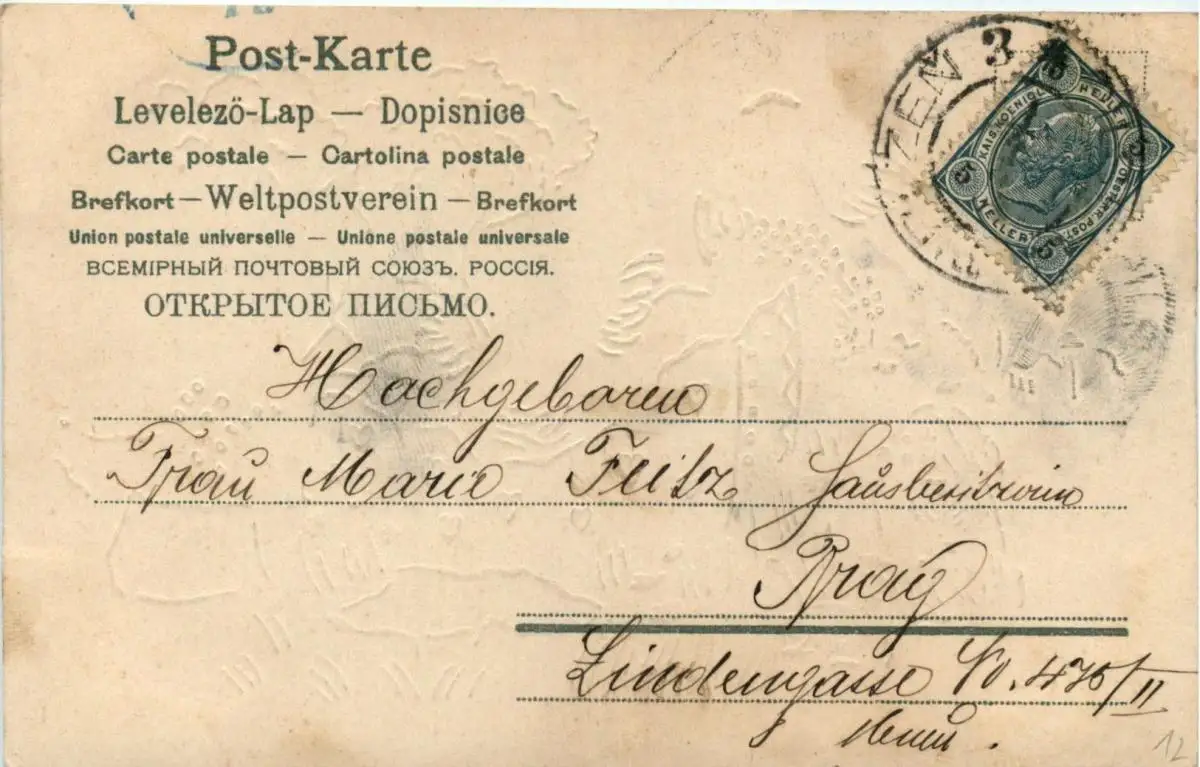 Post-Karte
Levelező-Lap — Dopisnice
Carte postale — Cartolina postale
Brefkort — Weltpostverein — Brefkort
Union postale universelle — Unione postale universale
ВСЕМІРНЫЙ ПОЧТОВЫЙ СОЮЗЪ. РОССІЯ.
ОТКРЫТОЕ ПИСЬМО.
ZEN 3
KAISKOENIGL
5
HELLER
5
Hochgeboren
Frau Marie Feitz Hausbesitzerin
Prag
Lindengasse No. 476/II
12